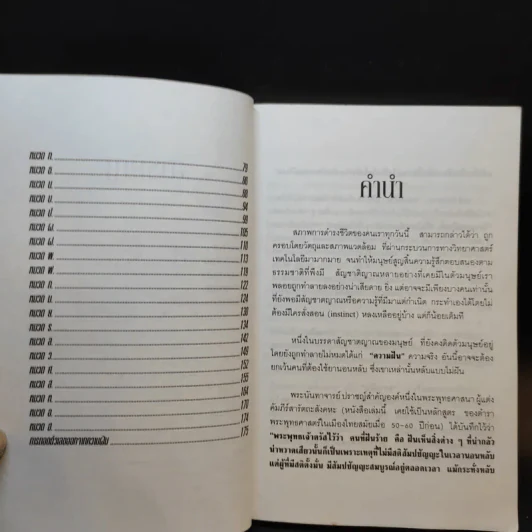 หมวด ถ. 79
หมวด ธ. 86
หมวด น. 88
หมวด บ. 94
หมวด ป. 98
หมวด ผ. 105
หมวด ฝ. 110
หมวด พ. 113
หมวด ฟ. 119
หมวด ภ. 122
หมวด ม. 124
หมวด ย. 130
หมวด ร. 134
หมวด ล. 142
หมวด ว. 149
หมวด ศ. 152
หมวด ส. 155
หมวด ห. 164
หมวด อ. 170
หมวด ฮ. 174
175
คำนำ
สภาพการดำรงชีวิตของคนเราทุกวันนี้ สามารถกล่าวได้ว่า ถูก
ครอบโดยวัตถุและสภาพแวดล้อม ที่ผ่านกระบวนการทางวิทยาศาสตร์
เทคโนโลยีมามากมาย จนทำให้มนุษย์สูญสิ้นความรู้สึกตอบสนองตาม
ธรรมชาติที่พึงมี สัญชาตญาณหลายอย่างที่เคยมีในตัวมนุษย์เรา
พลอยถูกทำลายลงอย่างน่าเสียดาย ยิ่ง แต่อาจจะมีเพียงบางคนเท่านั้น
ที่ยังพอมีสัญชาตญาณหรือความรู้ที่มีมาแต่กำเนิด กระทำเองได้โดยไม่
ต้องมีใครสั่งสอน (instinct) หลงเหลืออยู่บ้าง แต่ก็น้อยเต็มที
หนึ่งในบรรดาสัญชาตญาณของมนุษย์ ที่ยังคงติดตัวมนุษย์อยู่
โดยยังถูกทำลายไม่หมดได้แก่ "ความฝัน" ความจริง อันนี้อาจจะต้อง
ยกเว้นคนที่ต้องใช้ยานอนหลับ ซึ่งเขาเหล่านั้นหลับแบบไม่ฝัน
พระนันทาจารย์ ปราชญ์สำคัญองค์หนึ่งในพระพุทธศาสนา ผู้แต่ง
คัมภีร์สารัตถะสังคหะ (หนังสือเล่มนี้ เคยใช้เป็นหลักสูตร ของตำรา
พระพุทธศาสตร์ในเมืองไทยสมัยเมื่อ 50-60 ปีก่อน) ได้บันทึกไว้ว่า
"พระพุทธเจ้าตรัสไว้ว่า คนที่ฝันร้าย คือ ฝันเห็นสิ่งต่าง ๆ ที่น่ากลัว
น่าหวาดเสียวนั้นก็เป็นเพราะเหตุที่ไม่มีสติสัมปชัญญะในเวลานอนหลับ
แต่ผู้ที่มีสติตั้งมั่น มีสัมปชัญญะสมบูรณ์อยู่ตลอดเวลา แม้กระทั่งหลับ